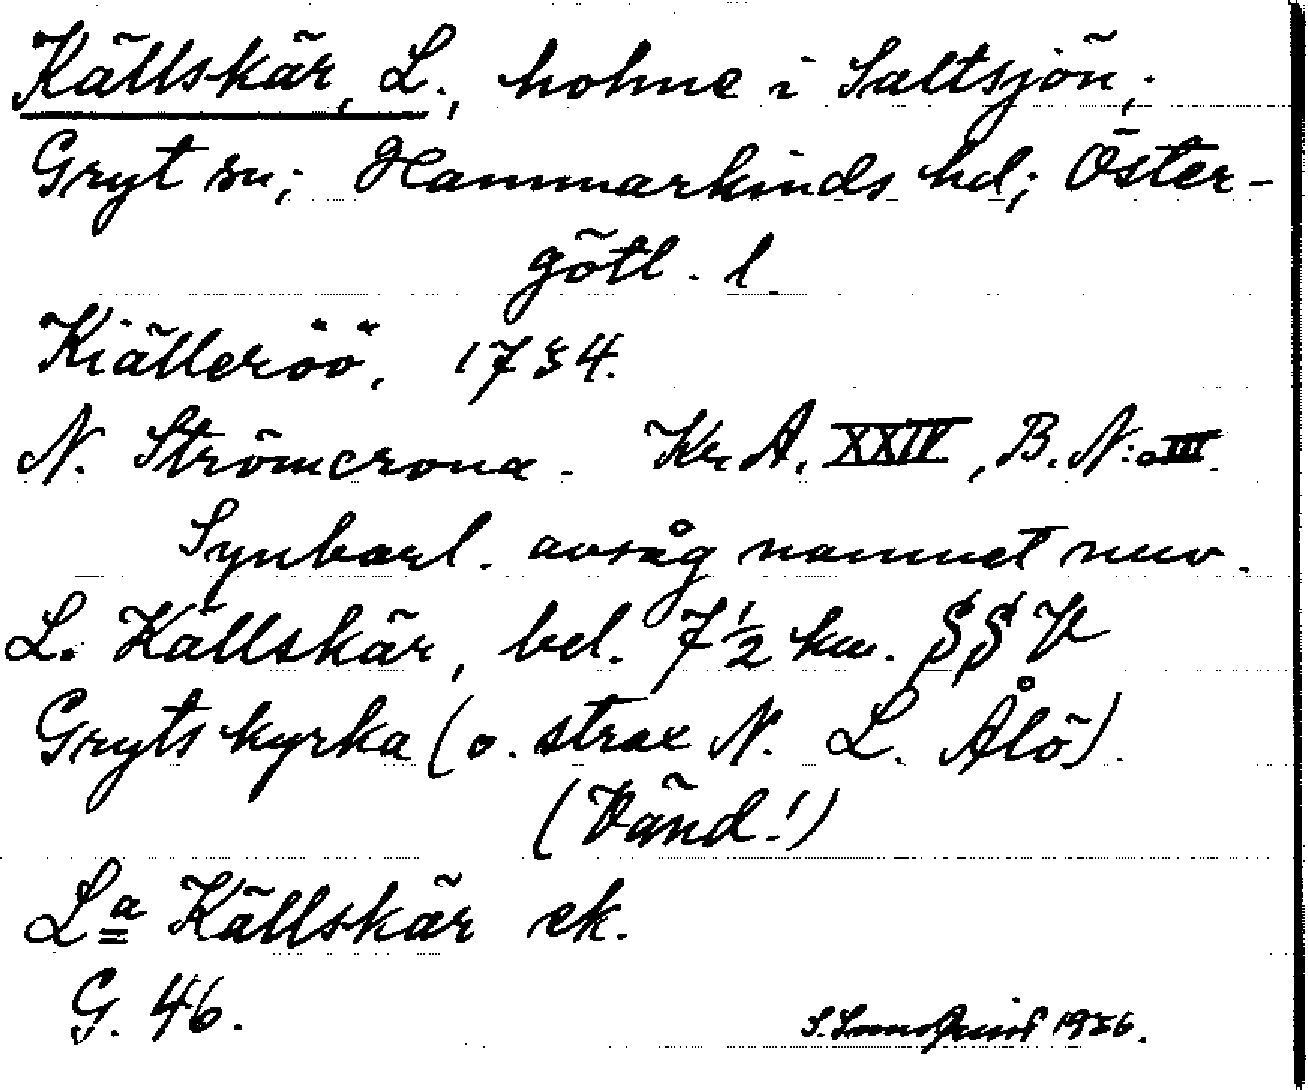 Källskär, L., holme i Saltsjön;
Gryt sn; Hammarkinds hd; Öster-
götl. l.
Kiälleröö, 1734.
N. Strömcrona. Kr. A. XXIV, B. N:o III.
Synbarl. avsåg namnet nuv.
L. Källskär, bel. 7 1/2 km. §§V
Gryts kyrka (o. strax N. L. Ålö).
(Vänd!)
La Källskär ek.
G. 46.
S. 1936.